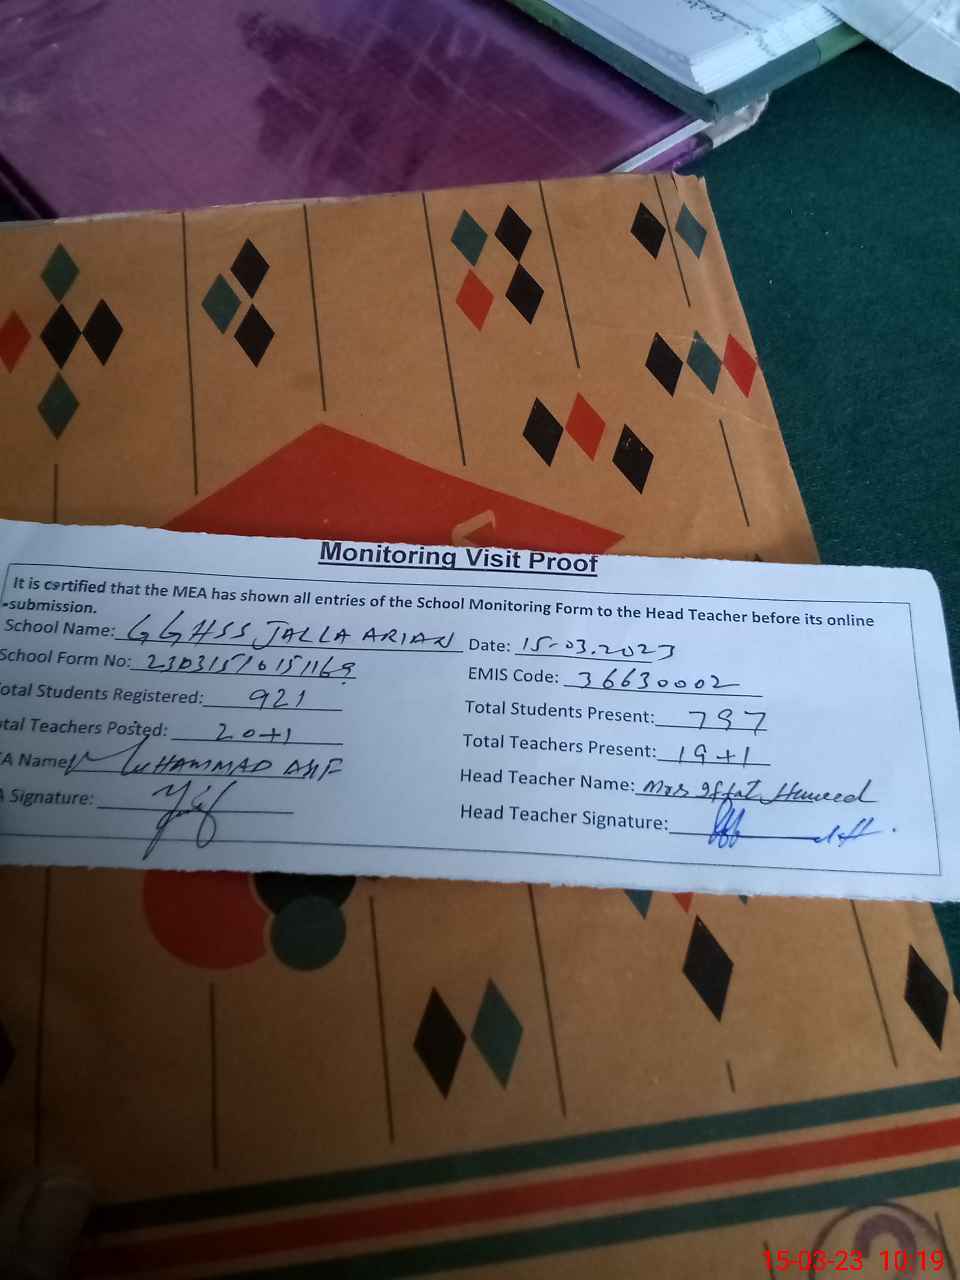 Monitoring Visit Proof
It is certified that the MEA has shown all entries of the School Monitoring Form to the Head Teacher before its online
-submission.
School Name: GGHSS JALLA ARIAN Date: 15-03.2023
School Form No: 23031510151169 EMIS Code: 36630002
otal Students Registered: 921 Total Students Present: 797
tal Teachers Posted: 20+1 Total Teachers Present: 19+1
A Name: MUHAMMAD ASIF Head Teacher Name: Mrs Iffat Hameed
A Signature: Head Teacher Signature:
15-03-23 10:19